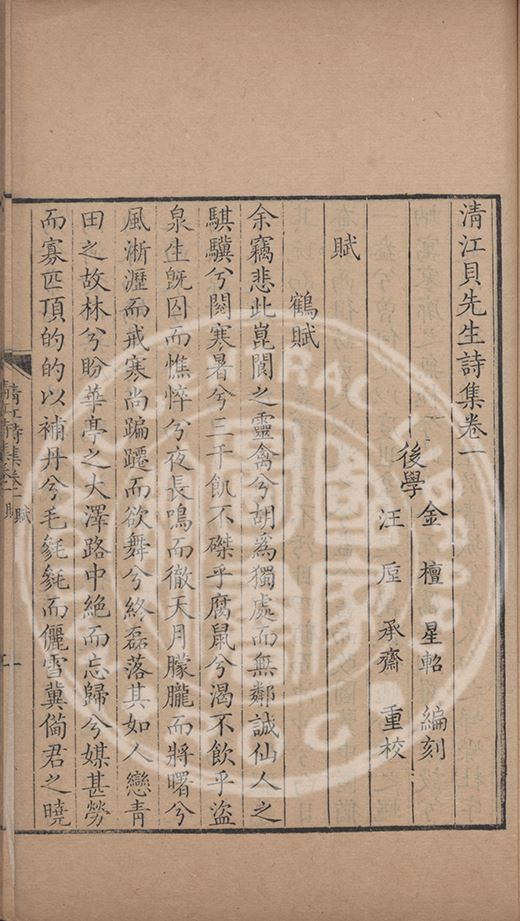 清江貝先生詩集卷一
後學
金檀星軺編刻
汪厓承齋重校
賦
鶴賦
余竊悲此崑閬之靈禽兮胡為獨處而無鄰誠仙人之
騏驥兮閱寒暑兮三千飢不磔乎腐鼠兮渴不飲乎盜
泉生旣囚而憔悴兮夜長鳴而徹天月朦朧而將曙兮
風淅瀝而戒寒尚蹁躚而欲舞兮終磊落其如人戀青
田之故林兮盼華亭之大澤路中絶而忘歸兮媒甚勞
而寡匹頂的的以補丹兮毛毿毿而儷雪冀僃君之曉
清江詩集卷一 賦
一